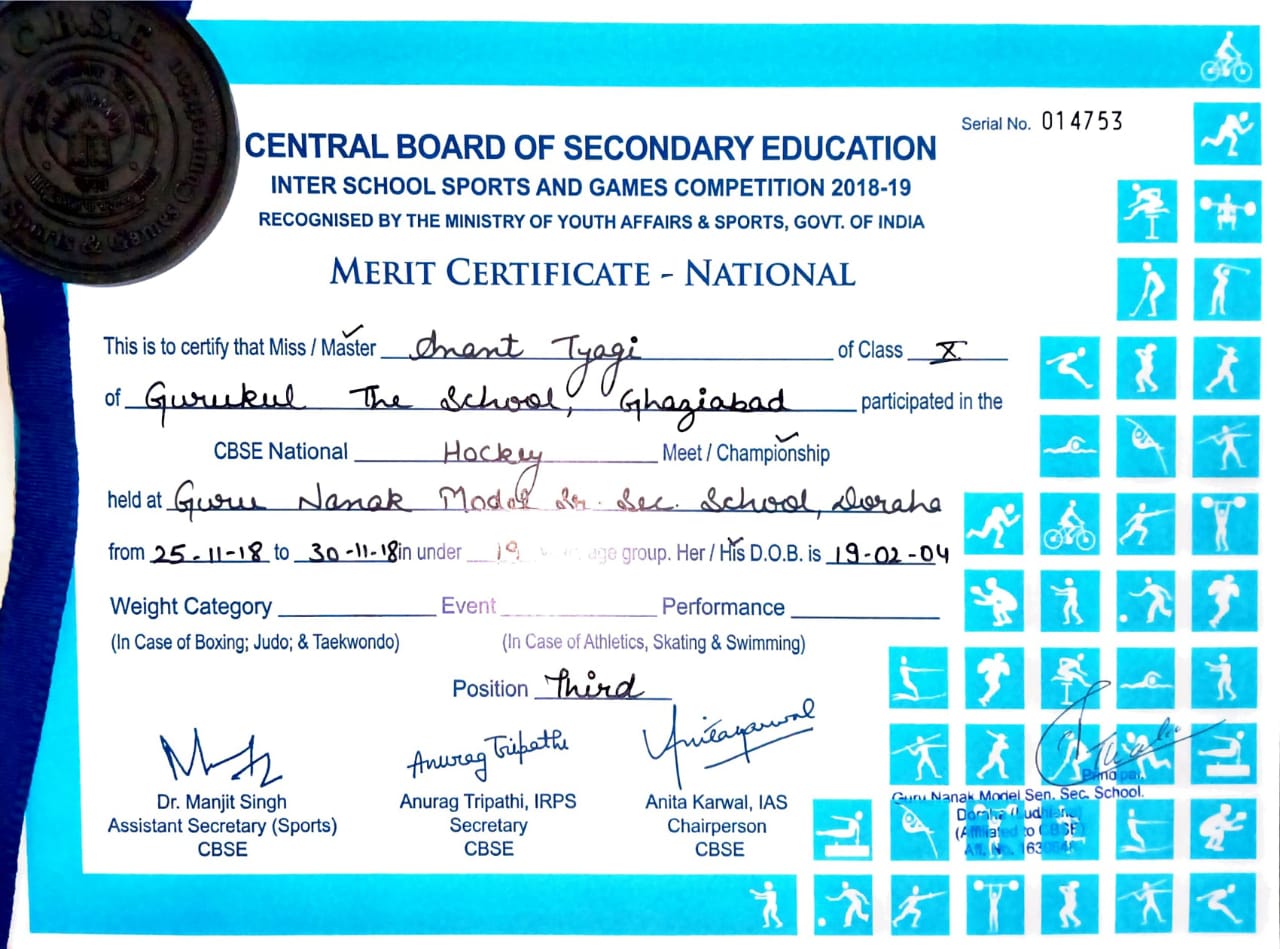 C.B.S.E.
Sports & Games Competitions
Serial No. 014753
CENTRAL BOARD OF SECONDARY EDUCATION
INTER SCHOOL SPORTS AND GAMES COMPETITION 2018-19
RECOGNISED BY THE MINISTRY OF YOUTH AFFAIRS & SPORTS, GOVT. OF INDIA
MERIT CERTIFICATE - NATIONAL
This is to certify that Miss / Master Anant Tyagi of Class X
of Gurukul The School, Ghaziabad participated in the
CBSE National Hockey Meet / Championship
held at Guru Nanak Model Sr. Sec. School, Doraha
from 25-11-18 to 30-11-18 in under 19 age group. Her / His D.O.B. is 19-02-04
Weight Category Event Performance
(In Case of Boxing; Judo; & Taekwondo) (In Case of Athletics, Skating & Swimming)
Position Third
Anurag Tripathi
Dr. Manjit Singh Anurag Tripathi, IRPS Anita Karwal, IAS
Assistant Secretary (Sports) Secretary Chairperson
CBSE CBSE CBSE
Principal,
Guru Nanak Model Sen. Sec. School.
Doraha (Ludhiana)
(Affiliated to CBSE)
Aff. No.